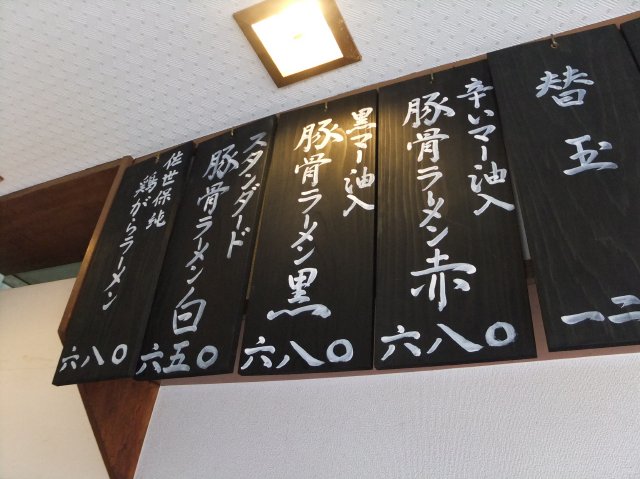 替玉
一二
辛いマー油入
豚骨ラーメン赤
六八〇
黒マー油入
豚骨ラーメン黒
六八〇
スタンダード
豚骨ラーメン白
六五〇
佐世保地
鶏がらラーメン
六八〇